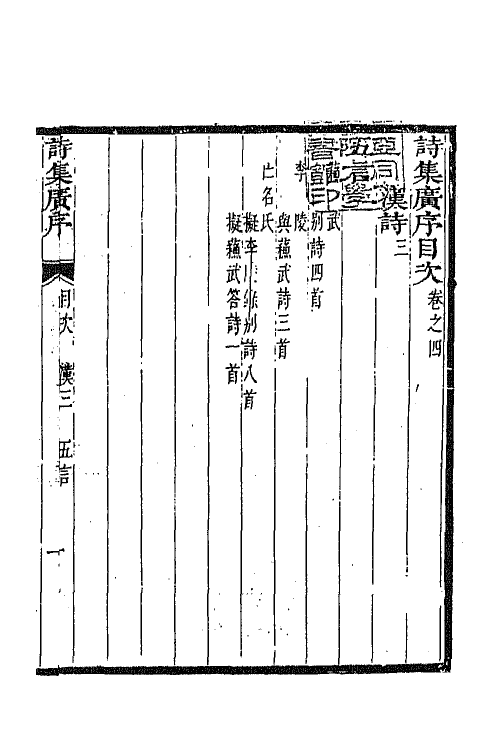 詩集廣序目次 卷之四
漢詩三
蘇武
別詩四首
李陵
與蘇武詩三首
亡名氏
擬李陵錄別詩八首
擬蘇武答詩一首
詩集廣序 目次 漢三 五言 一